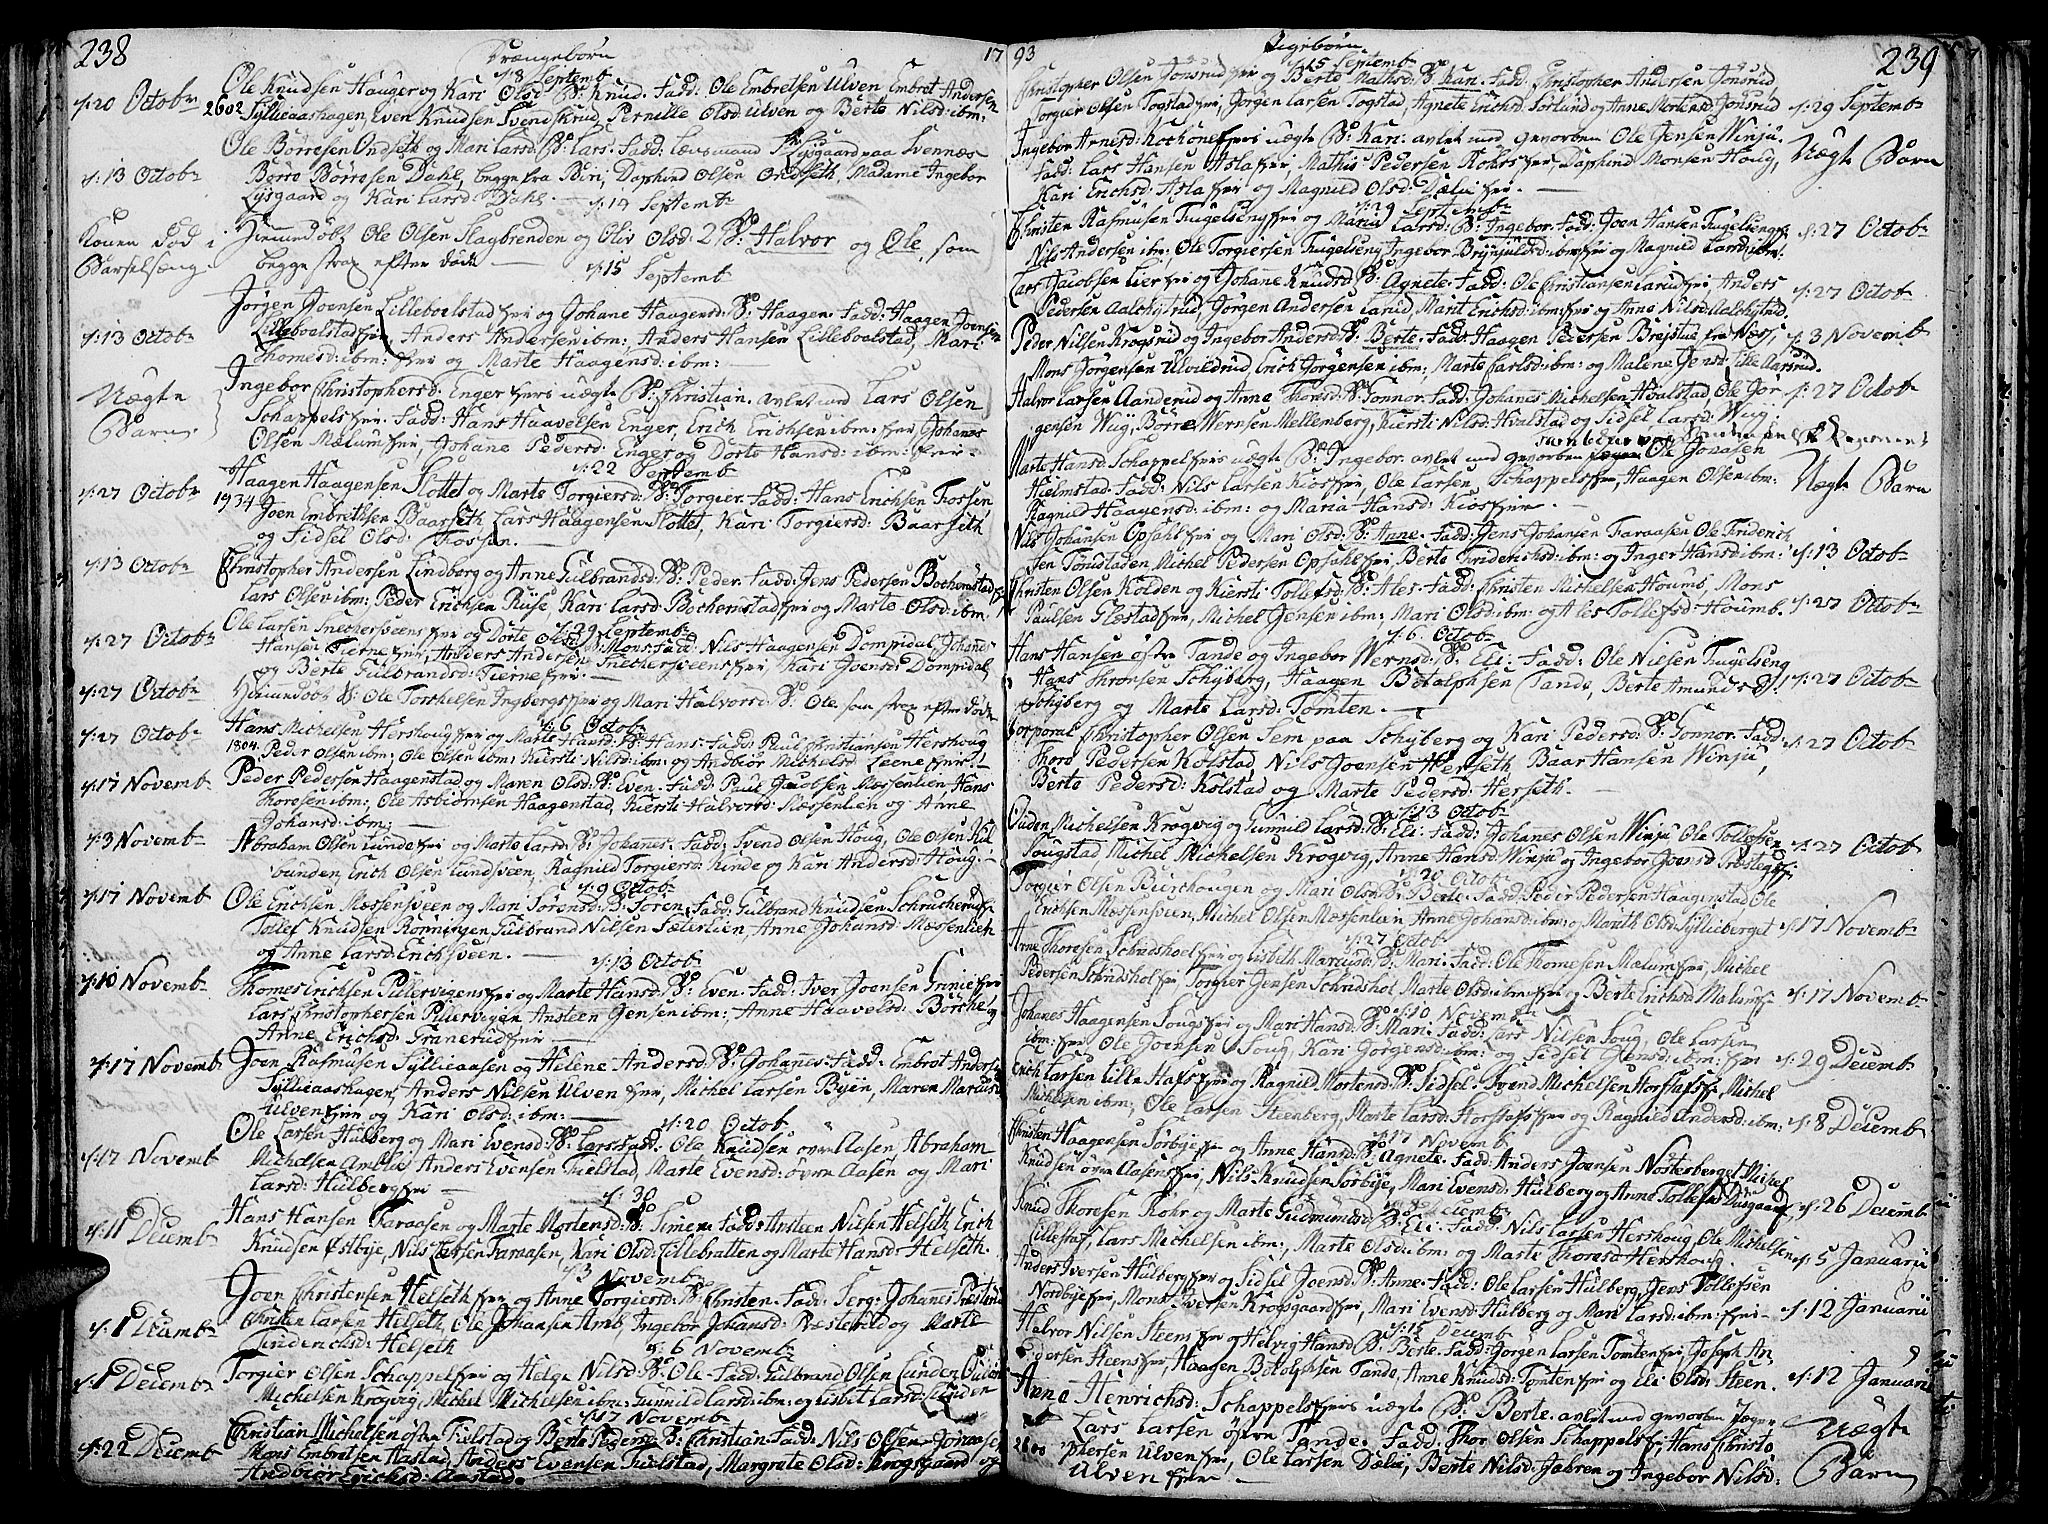 238
Drængebörn
17
d: 8 Septemb
d: 20 Octobr
Ole Knudsen Hauger og Kari Olsd: Bn: Knud. Fadd: Ole Embretsen Ulven Embret Andersen
2602 Syllieaashagen, Even Knudsen Svendskrud, Pernille Olsd: Ulven og Berte Nilsd: ibm:
Ole Börresen Ondseth og Mari Larsd: Bn: Lars. Fadd: Lensmand Lysgaard paa Svennæs
d: 13 Octobr
Börre Börresen Dahl, begge fra Biri, Daphind Olsen Ondseth, Madame Ingebor
Lysgaard og Kari Larsd: Dahl.
d: 14 Septembr
Konen död i
Barselseng
Ole Olsen Slagbrenden og Oliv Olsd: 2 Bn: Halvor og Ole, som
begge strax efter döde
d: 15 Septemb
Jörgen Joensen Lilleboelstad og Johane Haagensd: Bn: Haagen. Fadd: Haagen Joensen
d: 13 Octobr
Lilleboelstad, Anders Andersen ibm: Anders Hansen Lilleboelstad, Mari
Thomesd: ibm: og Marte Haagensd: ibm:
Uægte
Barn
Ingebor Christophersd: Enger uægte Bn: Christian. avlet med Lars Olsen
Schappels Fadd: Hans Haavelsen Enger, Erich Erichsen ibm: Johanes
Olsen Mælum, Johanne Pedersd: Enger og Dorte Hansd: ibm:
d: 22 Septemb
d: 27 Octobr
Haagen Haagensen Slottet og Marte Torgiersd: Bn: Torgier. Fadd: Hans Erichsen Fossen
1934 Joen Embrethsen Baarseth Lars Haagensen Slottet, Kari Torgiersd: Baarseth
og Sidsel Olsd: Fossen.
d: 13 Octobr
Christopher Andersen Lindberg og Anne Gulbrandsd: Bn: Peder. Fadd: Jens Pedersen Bochemstad
Lars Olsen ibm: Peder Erichsen Ryse Kari Larsd: Bochemstad og Marte Olsd: ibm
d: 29 Septembr
d: 27 Octobr
Ole Larsen Snechersveen og Dorte Olsd: Bn: Mons Fadd: Nils Haagensen Dompidal, Johanes
Hansen Tierne, Anders Andersen Snechersveen, Kari Joensd: Dompidal,
og Berte Gulbrandsd: Tierne
d: 27 Octobr
Ole Torchelsen Ingbergs og Mari Halvorsd: Bn: Ole som strax efter döde
d: 6 Octobr
d: 27 Octobr
Hans Michelsen Hershoug og Marte Hansd: Bn: Hans. Fadd: Poul Christiansen Hershoug
1804 Peder Olsen ibm: Ole Olsen ibm: Kiersti Nilsd: ibm: og Andbior Michelsd: Leene
d: 17 Novemb
Peder Pedersen Haagenstad og Maren Olsd: Bn: Even. Fadd: Paul Mæssenlien, Hans
Thoresen ibm:, Ole Asbiörnsen Haagenstad, Kiersti Halvorsd: Mæssenlien og Anne
Johansd: ibm:
d: 3 Novembr
Abraham Olsen Lunde og Marte Larsd: Bn: Johannes. Fadd: Svend Olsen Houg, Ole Olsen
Erich Olsen Lundsveen, Ragnild Torgiersd: Linde og Kari Andersd: Houg
d: 9 Octobr
d: 17 Novemb
Ole Erichsen Mæssensveen og Mari Sörensd: Bn: Sören. Fadd: Gulbrand Knudsen Schrucherud
Tollef Knudsen Rönningen Gulbrand Nilsen Sæterlien, Anne Johansd: Mæssenlien
og Anne Larsd: Erichsveen.
d: 13 Octob
d: 10 Novembr
Thomes Erichsen Pulervigens og Marte Hansd: Bn: Even. Fadd: Iver Joensen Grinie
Lars Christophersen Pulervigen Ansteen Jensen ibm: Anne Haavelsd: Börche og
Anne Erichsd: Granerud
d: 17 Novemb
Joen Rasmusen Syllieaasen og Helene Andersd: Bn: Johannes. Fadd: Embret Andersen
Syllieaashagen, Anders Nilsen Ulven, Michel Larsen Byen, Maren Marcusd:
Ulven og Kari Olsd: ibm:
d: 20 Octob
d: 17 Novemb
Ole Larsen Hulberg og Mari Evensd: Bn: Lars. Fadd: Ole Knudsen övre Aasen, Abraham
Michelsen Amblie Anders Evensen Fielstad, Marte Evensd: övre Aasen og Mari
Larsd: Hulberg
d: 30
d: 11 Decembr
Hans Hansen Faraasen og Marte Mortensd: Bn: Simen. Fadd: Ansteen Nilsen Helseth Erich
Knudsen Östbye, Nils Larsen Faraasen, Kari Olsd: Lillebratten og Marte Hansd: Helseth.
d: 3 Novembr
Joen Christensen Helseth og Anne Torgiersd: Bn: Christen. Fadd: Serg: Johannes
d: 1 Decembr
Christen Larsen Helseth, Ole Johansen Amb, Ingebor Johansd: Næsteveld og Marte
Friderichsd: Helseth
d: 6 Novembr
d: 1 Decembr
Torgier Olsen Schappel og Helge Nilsd: Bn: Ole. Fadd: Gulbrand Olsen Lunden Ouden
Michelsen Krogvig, Michel Michelsen ibm: Gunild Larsd: ibm: og Lisbet Larsd: Lunden
d: 17 Novembr
d: 22 Decemb
Christian Michelsen östre Fielstad og Berte Pedersd: Bn: Christian. Fadd: Nils Olsen
Mons Embretsen Aastad Anders Evensen Fielstad, Margrete Olsd: Krogsgaard og
Andbior Erichsd: Aastad.
93
Pigebörn
239
d: 15 Septemb
Christopher Olsen Jönsrud og Berte Mathisd: Bn: Kari. Fadd: Christopher Andersen Jönsrud,
Torgier Olsen Togstad, Jörgen Larsen Togstad, Agnete Erichsd: Sorlund og Anne Mortensd: Jönsrud
d: 29 Septembr
Ingebor Arnesd: uægte Bn: Kari. avlet med gevorben Ole Jensen Winju.
Fadd: Lars Hansen Asla, Mathis Pedersen Röhrs, Daphind Monsen Houg,
Uægte Barn
Kari Erichsd: Asla og Magnild Olsd: Dælie.
d: 29 Septembr
Christen Rasmusen Fuglseng og Maria Larsd: Bn: Ingebor. Fadd: Joen Hansen Fuglseng
Nils Andersen ibm:, Ole Torgiersen Fuglseng Ingebor Brynjulsd: ibm: og Magnild Larsd: ibm:
d: 27 Octobr
Lars Jacobsen Lier og Johanne Knudsd: Bn: Agnete. Fadd: Ole Christiansen Larud, Anders
Pedersen Aalchytrud, Jörgen Andersen Larud, Marit Erichsd: ibm: og Anne Nilsd: Aalchytrud.
d: 27 Octobr
Peder Nilsen Krogsrud og Ingebor Andersd: Bn: Berte. Fadd: Haagen Pedersen Brejstue fra Næs,
d: 3 Novemb
Mons Jörgensen Ulvildrud, Erich Jörgensen ibm:, Marte Carlsd: ibm: og Malene Jensd: Lille
Halvor Larsen Aanderud og Anne Thorsd: Bn: Gonnor. Fadd: Johannes Michelsen Hvalstad Ole Jör
gensen Wug, Börre Wernsen Mellemberg, Kiersti Nilsd: Hvalstad og Sidsel Larsd: Wug.
d: 27 Octobr
Marte Hansd: Schappel uægte Bn: Ingebor. avlet med gevorben Ole Jonasen
Hielmstad. Fadd: Nils Larsen Kios, Ole Larsen Schappels, Haagen Olsen ibm:
Uægte Barn
Ragnild Haagensd: ibm: og Maria Hansd: Kios.
Nils Johansen Opsahl og Mari Olsd: Bn: Anne. Fadd: Jens Johansen Faraasen Ole Friderich
sen Tondstaden Michel Pedersen Opsahl Berte Friderichsd: ibm: og Inger Hansd: ibm:
d: 13 Octobr
Christen Olsen Kolden og Kiersti Tollefsd: Bn: Ales. Fadd: Christen Michelsen Houmb, Mons
Paulsen Glæstad, Michel Jensen ibm: Mari Olsd: ibm: og Ales Tollefsd: Houmb.
d: 27 Octobr
d: 6 Octobr
Hans Hansen östre Tande og Ingebor Wernsd: Bn: Eli. Fadd: Ole Nilsen Fuglseng
Hans Thronsen Schyberg, Haagen Botolphsen Tande, Berte Amundsd:
d: 27 Octobr
Schyberg og Marte Larsd: Tomten.
Corporal Christopher Olsen Sem paa Schyberg og Kari Pedersd: Bn: Gonnor. Fadd:
Thord Pedersen Kolstad Nils Joensen Herseth Baar Hansen Winju,
d: 27 Octobr
Berte Pedersd: Kolstad og Marte Pedersd: Herseth.
d: 13 Octobr
Ouden Michelsen Krogvig og Gunild Larsd: Bn: Eli. Fadd: Johanes Olsen Winju Ole Tollefsen
Sougstad Michel Michelsen Krogvig, Anne Hansd: Winju og Ingebor Joensd:
d: 27 Octob
d: 20 Octobr
Torgier Olsen Buerhougen og Mari Olsd: Bn: Berte. Fadd: Peder Pedersen Haagenstad Ole
Erichsen Mæssensveen, Michel Olsen Mæssenlien Anne Johansd: ibm: og Marith Olsd: Syllieberget
d: 17 Novembr
d: 27 Octobr
Arne Thoresen Schridshoel og Lisbeth Marcusd: Bn: Mari. Fadd: Ole Thomesen Mælum, Michel
Pedersen Schridshol Torgier Jensen Schridshol Marte Olsd: ibm: og Berte Erichsd: Mælum
d: 17 Novembr
d: 10 Novembr
Johanes Haagensen Sougs og Mari Hansd: Bn: Mari. Fadd: Lars Nilsen Soug, Ole Larsen
ibm: Ole Joensen Soug, Kari Jörgensd: ibm: og Sidsel Jensd: ibm:
d: 29 Decembr
Erich Larsen Lille Hafs og Ragnild Mortensd: Bn: Sidsel. Svend Michelsen Horshafs, Michel
Michelsen ibm:, Ole Larsen Steenberg, Marte Larsd: Horshafs og Ragnild Andersd: ibm:
d: 8 Decemb
d: 17 Novembr
Christen Haagensen Sörbye og Anne Hansd: Bn: Agnete. Fadd: Anders Joensen Nösterberget Michel
Knudsen övre Aasen, Nils Knudsen Sörbye, Mari Evensd: Hulberg og Anne Tollefsd:
d: 26 Decembr
d: 8 Decembr
Knud Thoresen Rohr og Marte Gudmundsd: Bn: Eli. Fadd: Nils Larsen Hershoug, Ole Michelsen
Lillehaf, Lars Michelsen ibm:, Marte Olsd: ibm: og Marte Thomasd: Hershoug.
d: 5 Januarii
Anders Iversen Hulberg og Sidsel Joensd: Bn: Anne. Fadd: Ole Larsen Hulberg, Jens Tollefsen
Nordbye, Mons Iversen Krogsgaard, Mari Evensd: Hulberg og Mari Larsd: ibm:
d: 12 Januarii
d: 15 Decembr
Halvor Nilsen Steens og Helvig Hansd: Bn: Berte. Fadd: Jörgen Larsen Tomten, Joseph An
dersen Steens, Haagen Botolphsen Tande, Anne Knudsd: Tomten og Eli Olsd: Steen.
d: 12 Januarii
Anne Henrichsd: Schappels uægte Bn: Berte. avlet med gevorben Jæger
Lars Larsen östre Tande. Fadd: Thor Olsen Schappels, Hans Christo
Uægte
2800 phersen Ulven, Ole Larsen Dælie, Berte Nilsd: Jahren og Ingebor Nilsd:
Barn
Ulven